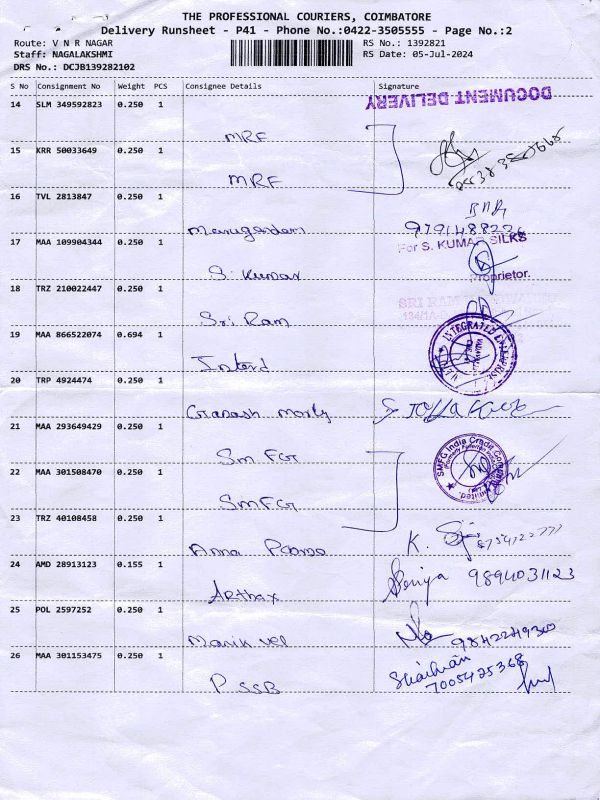 THE PROFESSIONAL COURIERS, COIMBATORE
Delivery Runsheet - P41 - Phone No.:0422-3505555 - Page No.:2
Route: V N R NAGAR RS No.: 1392821
Staff: NAGALAKSHMI RS Date: 05-Jul-2024
DRS No.: DCJB139282102
S No Consignment No Weight PCS Consignee Details Signature
DOCUMENT DELIVERY
14 SLM 349592823 0.250 1
MRF
15 KRR 50033649 0.250 1
MRF
16 TVL 2813847 0.250 1
Murugandan 9791488226
17 MAA 109904344 0.250 1
For S. KUMAR SILKS
S. Kumar Proprietor.
18 TRZ 210022447 0.250 1
SRI RAM
Sri Ram
19 MAA 866522074 0.694 1
INTEGRATED ENTERPRISES
20 TRP 4924474 0.250 1
Ganash
21 MAA 293649429 0.250 1
SMFG India Credit Company Limited.
SMFG
22 MAA 301508470 0.250 1
SMFG
23 TRZ 40108458 0.250 1
Anna K.
24 AMD 28913123 0.155 1
9894031123
25 POL 2597252 0.250 1
9842249300
26 MAA 301153475 0.250 1
7005425368
P SSB